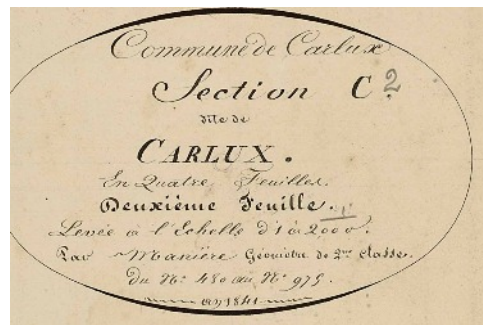 Commune de Carlux
Section C 2
dite de
CARLUX.
En Quatre Feuilles.
Deuxième Feuille.
Levée à l'Echelle d'1 à 2000.
Par Manière Géomètre de 2me classe.
Du No. 480 au No. 975.
en 1841